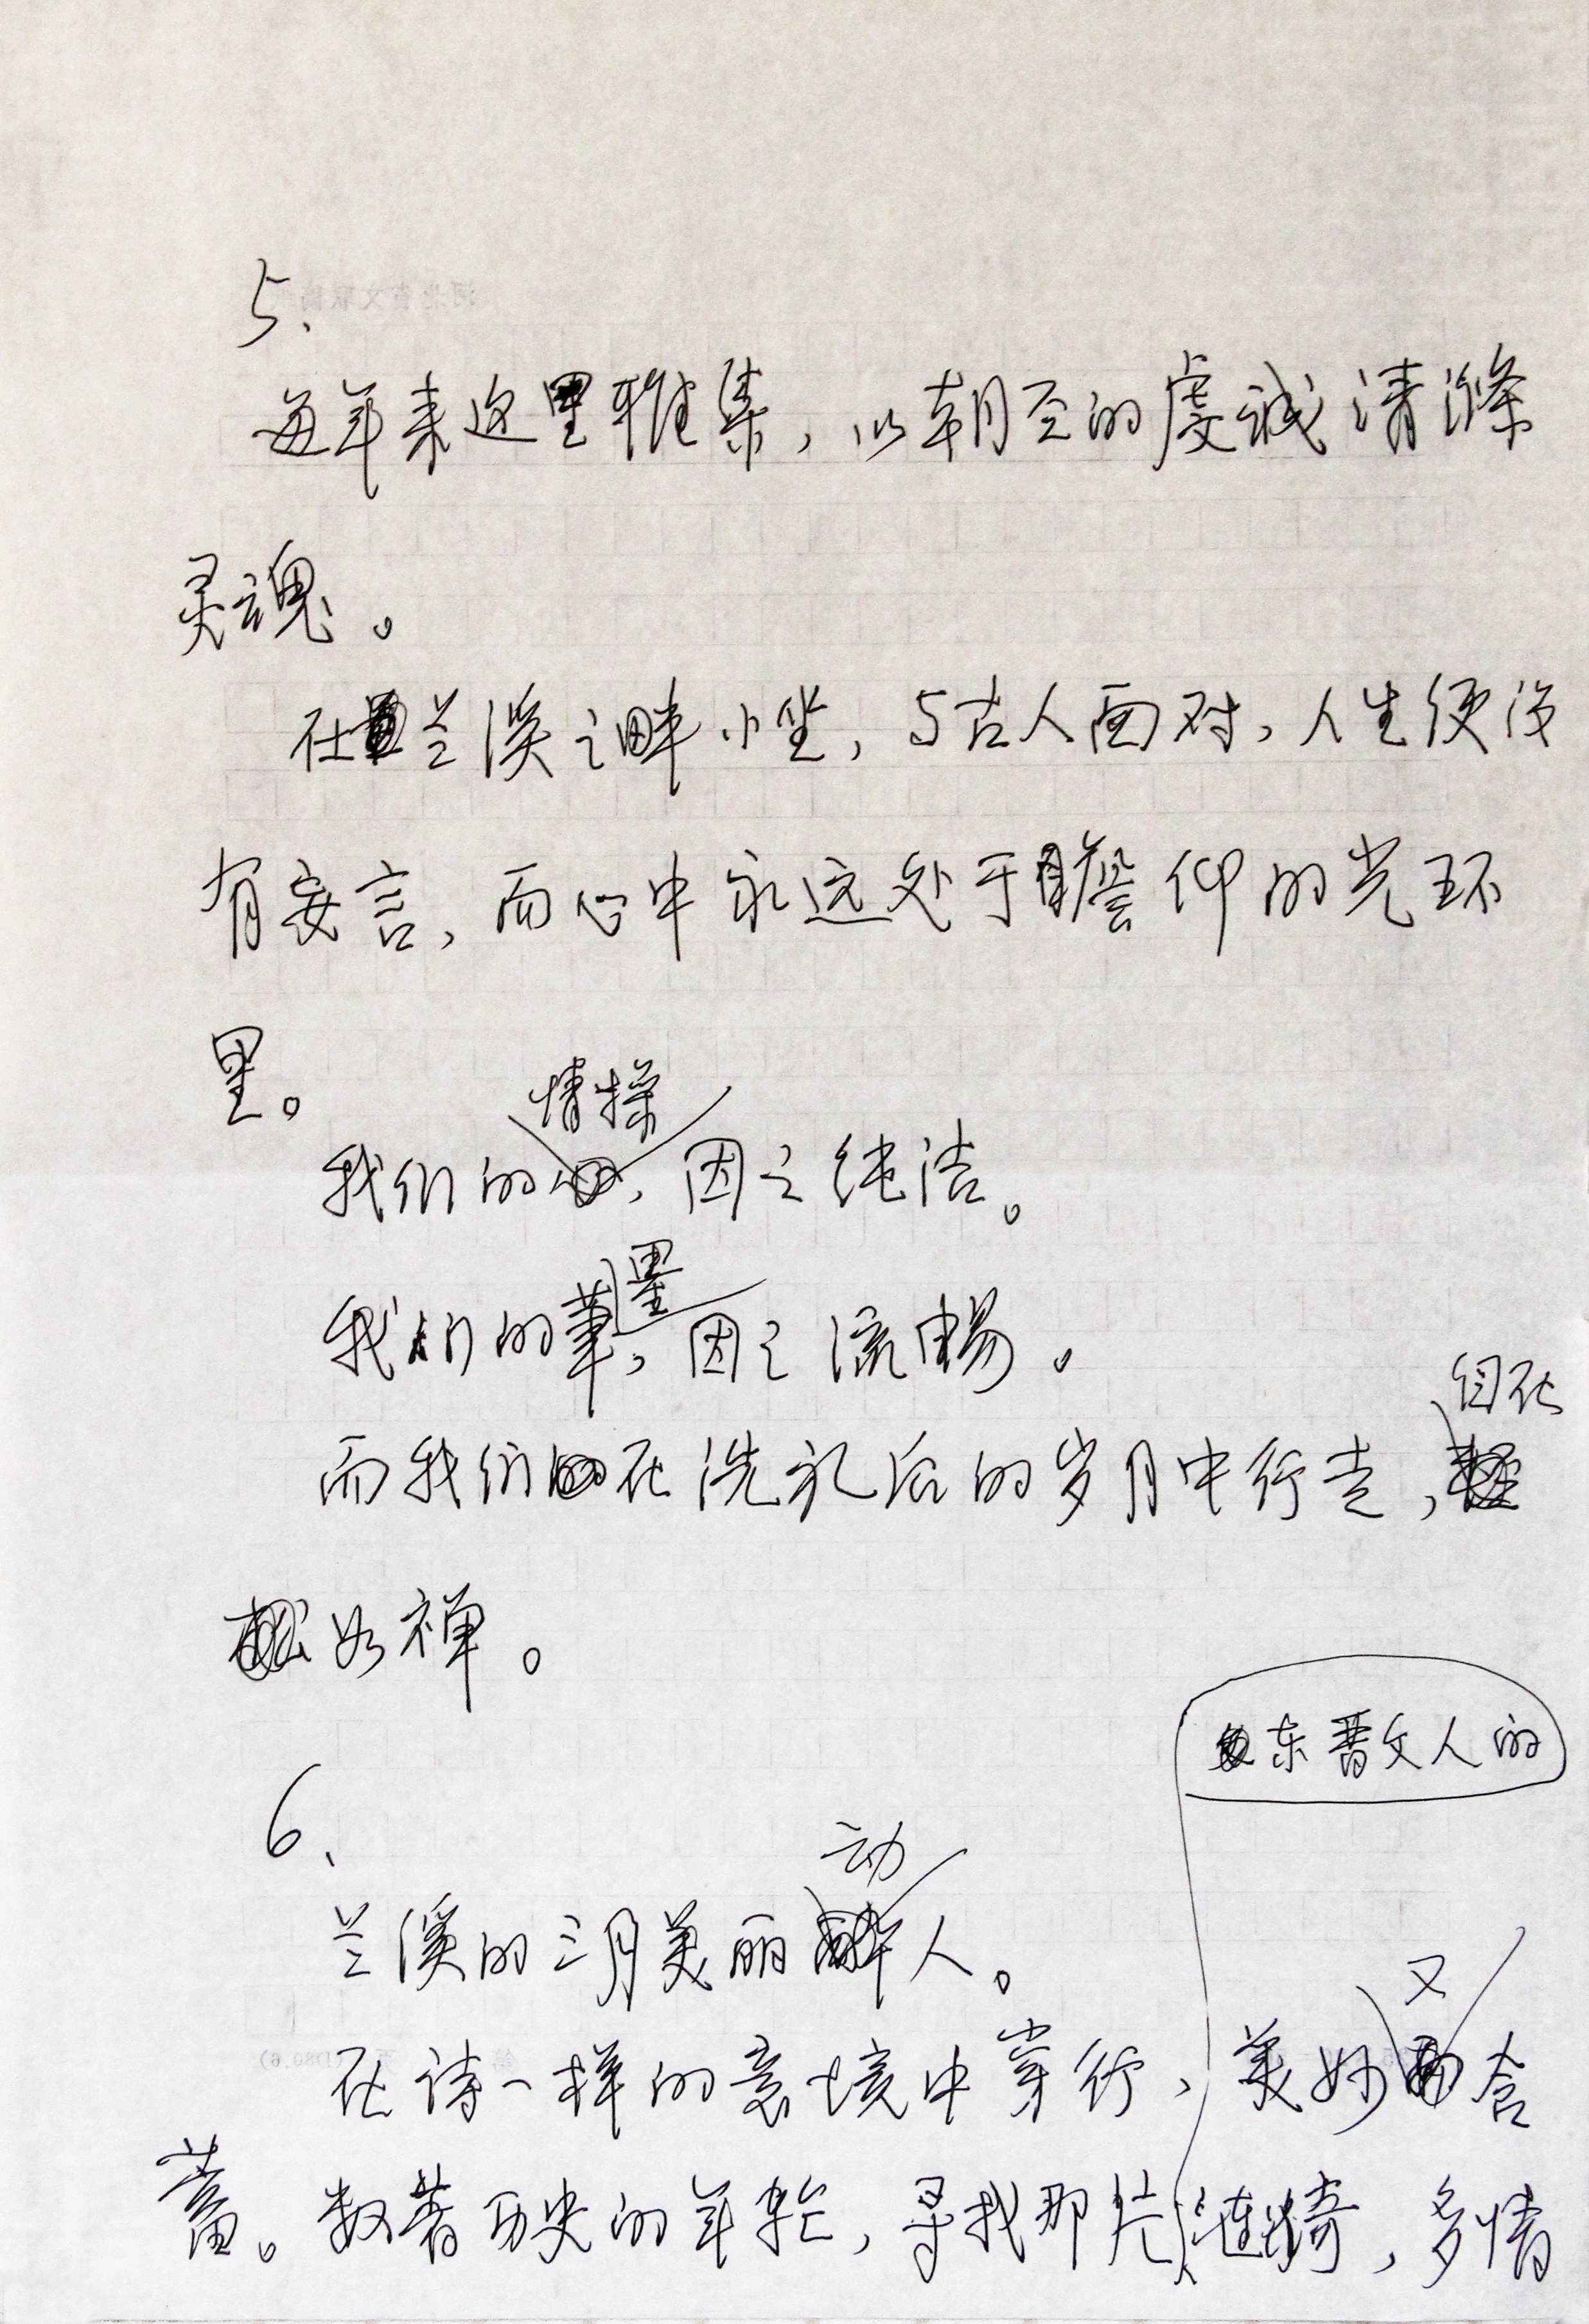 5.
每年来这里雅集，以朝圣的虔诚清涤
灵魂。
在兰溪之畔小坐，与古人面对，人生便没
有妄言，而心中永远处于瞻仰的光环
里。
情操
我们的，因之纯洁。
墨
我们的笔，因之流畅。
自在
而我们在洗礼后的岁月中行走，
如禅。
东晋文人的
6、
动
兰溪的三月美丽人。
又
在诗一样的意境中穿行，美妙含
蓄。数着历史的年轮，寻找那片涟漪，多情